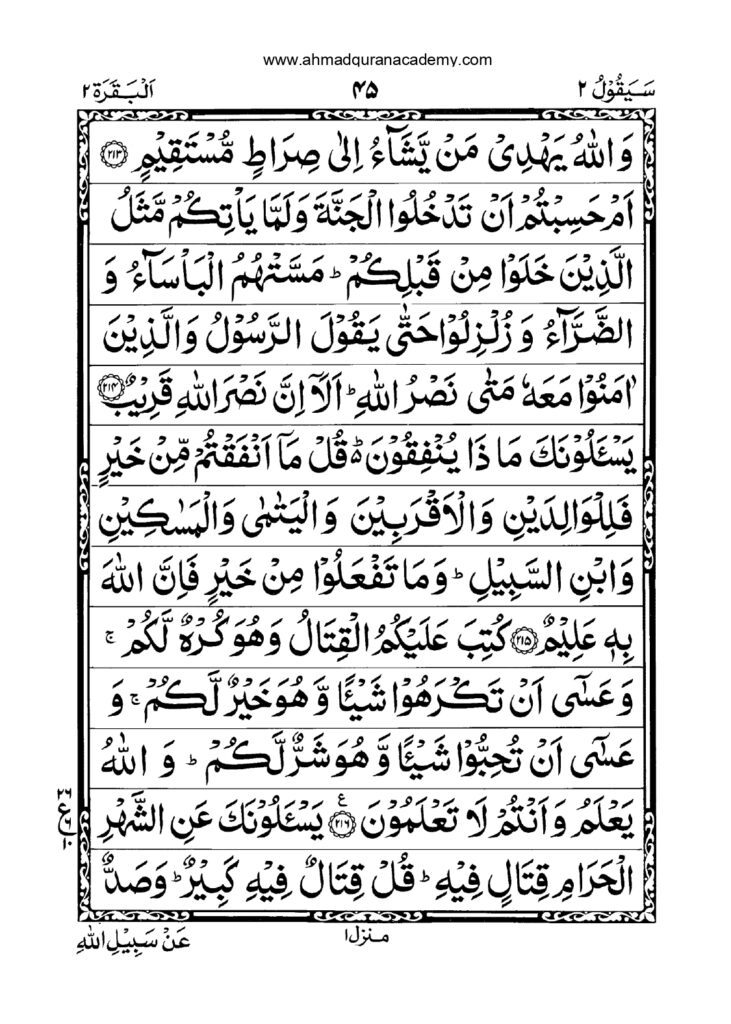 www.ahmadquranacademy.com
سَيَقُوۡلُ ٢
۴۵
اَلۡبَقَرَة ٢
وَاللّٰهُ يَهۡدِىۡ مَنۡ يَّشَآءُ اِلٰى صِرَاطٍ مُّسۡتَقِيۡمٍ ﴿۲۱۳﴾
اَمۡ حَسِبۡتُمۡ اَنۡ تَدۡخُلُوا الۡجَنَّةَ وَلَمَّا يَاۡتِكُمۡ مَّثَلُ
الَّذِيۡنَ خَلَوۡا مِنۡ قَبۡلِكُمۡ ؕ مَسَّتۡهُمُ الۡبَاۡسَآءُ وَ
الضَّرَّآءُ وَ زُلۡزِلُوۡا حَتّٰى يَقُوۡلَ الرَّسُوۡلُ وَالَّذِيۡنَ
اٰمَنُوۡا مَعَهٗ مَتٰى نَصۡرُ اللّٰهِ ؕ اَلَاۤ اِنَّ نَصۡرَ اللّٰهِ قَرِيۡبٌ ﴿۲۱۴﴾
يَسۡـَٔلُوۡنَكَ مَا ذَا يُنۡفِقُوۡنَ ؕ قُلۡ مَاۤ اَنۡفَقۡتُمۡ مِّنۡ خَيۡرٍ
فَلِلۡوَالِدَيۡنِ وَالۡاَقۡرَبِيۡنَ وَالۡيَتٰمٰى وَالۡمَسٰكِيۡنِ
وَابۡنِ السَّبِيۡلِ ؕ وَمَا تَفۡعَلُوۡا مِنۡ خَيۡرٍ فَاِنَّ اللّٰهَ
بِهٖ عَلِيۡمٌ ﴿۲۱۵﴾ كُتِبَ عَلَيۡکُمُ الۡقِتَالُ وَهُوَ كُرۡهٌ لَّـكُمۡ ۚ
وَعَسٰۤى اَنۡ تَكۡرَهُوۡا شَيۡـًٔا وَّهُوَ خَيۡرٌ لَّـکُمۡ ۚ وَ
عَسٰۤى اَنۡ تُحِبُّوۡا شَيۡـًٔا وَّهُوَ شَرٌّ لَّـكُمۡ ؕ وَ اللّٰهُ
يَعۡلَمُ وَاَنۡتُمۡ لَا تَعۡلَمُوۡنَ ﴿۲۱۶﴾ ع يَسۡـَٔلُوۡنَكَ عَنِ الشَّهۡرِ
الۡحَرَامِ قِتَالٍ فِيۡهِ ؕ قُلۡ قِتَالٌ فِيۡهِ كَبِيۡرٌ ؕ وَصَدٌّ
۲۶
ع
۶
۱۰
منزل ۱
عَنۡ سَبِيۡلِ اللّٰهِ